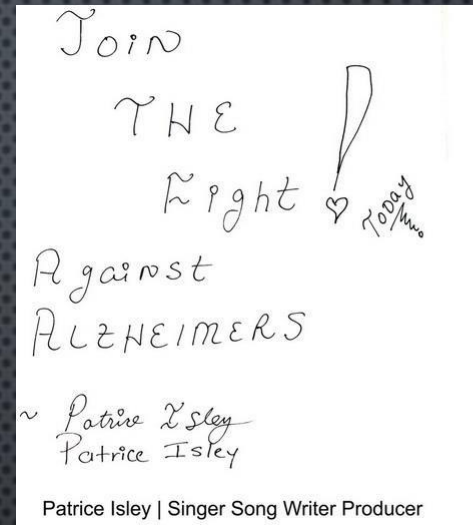 Join
THE
Fight !
Today
Against
ALZHEIMERS
~ Patrice Isley
Patrice Isley
Patrice Isley | Singer Song Writer Producer